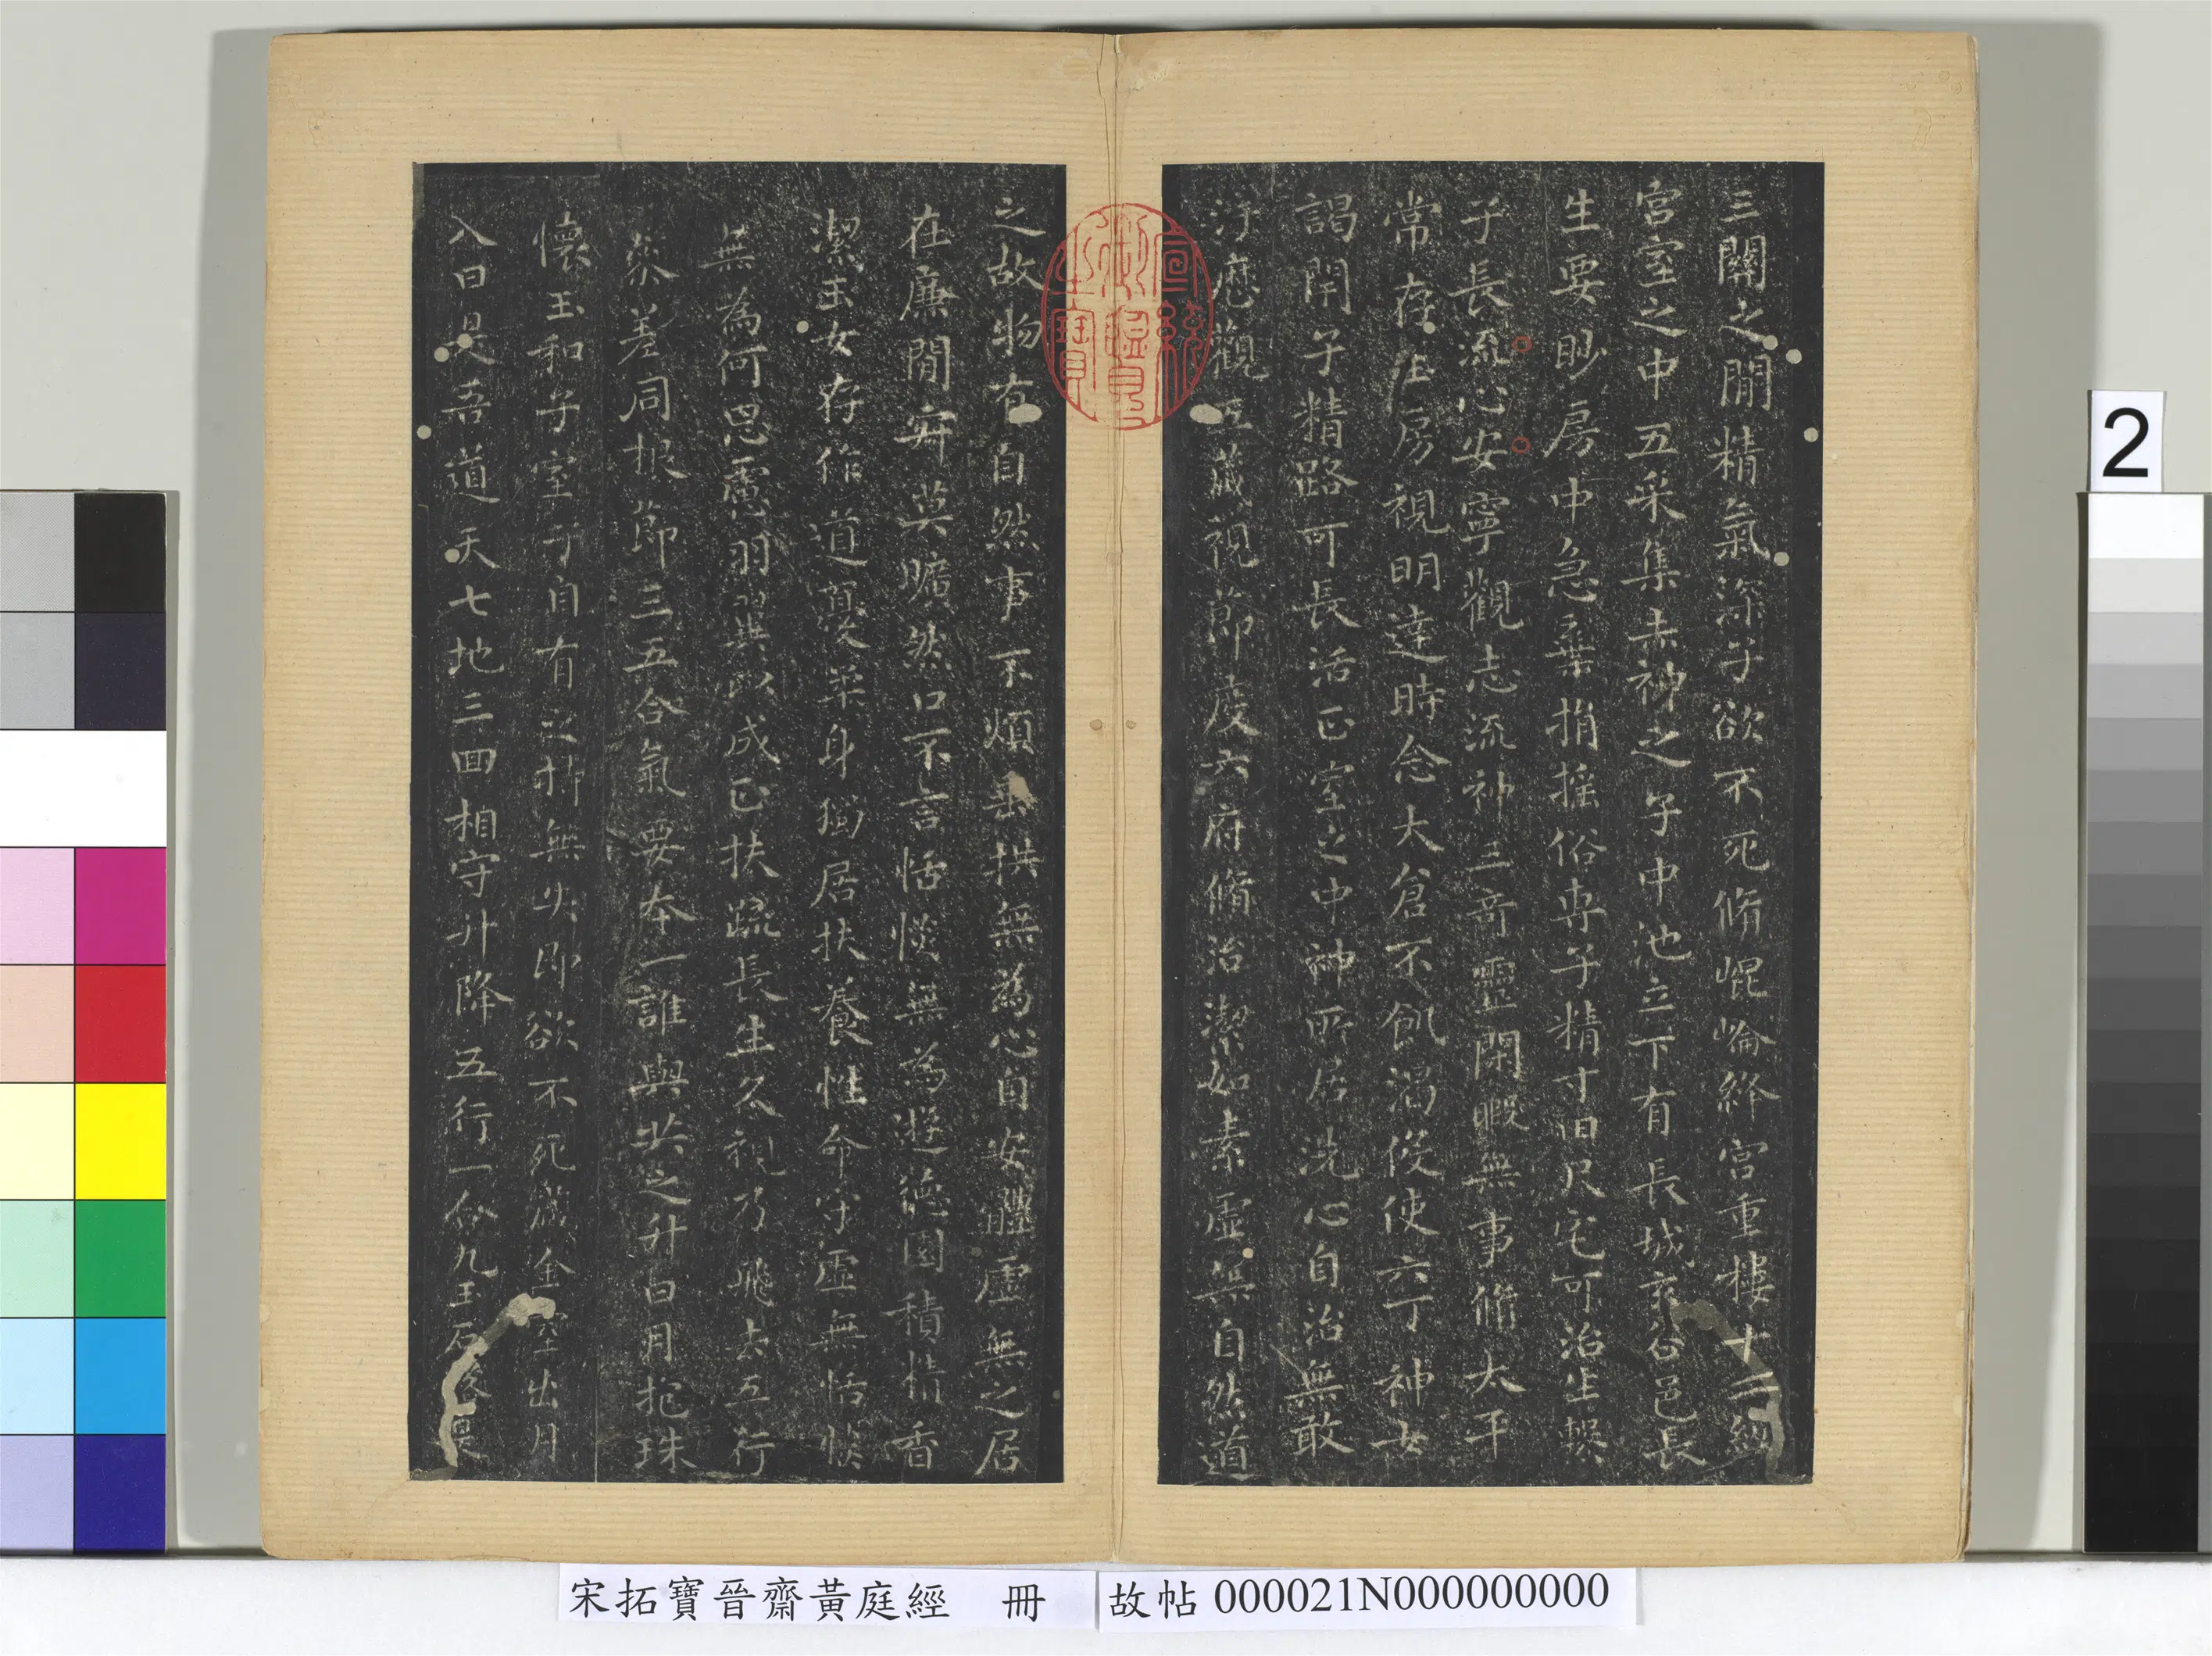 三關之間精氣深子欲不死脩崐崘絳宮重樓十二級
宮室之中五采集赤神之子中池立下有長城玄谷邑長
生要眇房中急棄捐搖俗專子精寸田尺宅可治生繫
子長流心安寧觀志流神三奇靈閑暇無事脩太平
常存玉房視明達時念大倉不飢渴役使六丁神女
謁閇子精路可長活正室之中神所居洗心自治無敢
汙歷觀五藏視節度六府脩治潔如素虛無自然道
之故物有自然事不煩垂拱無為心自安體虛無之居
在廉閒寂莫曠然口不言恬惔無為遊德園積精香
潔玉女存作道憂柔身獨居扶養性命守虛無恬惔
無為何思慮羽翼以成正扶疏長生久視乃飛去五行
叅差同根節三五合氣要本一誰與共之升日月抱珠
懷玉和子室子自有之持無失即欲不死藏金室出月
入日是吾道天七地三回相守升降五行一合九玉石落是
宣統御覽之寶
2
宋拓寶晉齋黃庭經 冊
故帖000021N000000000